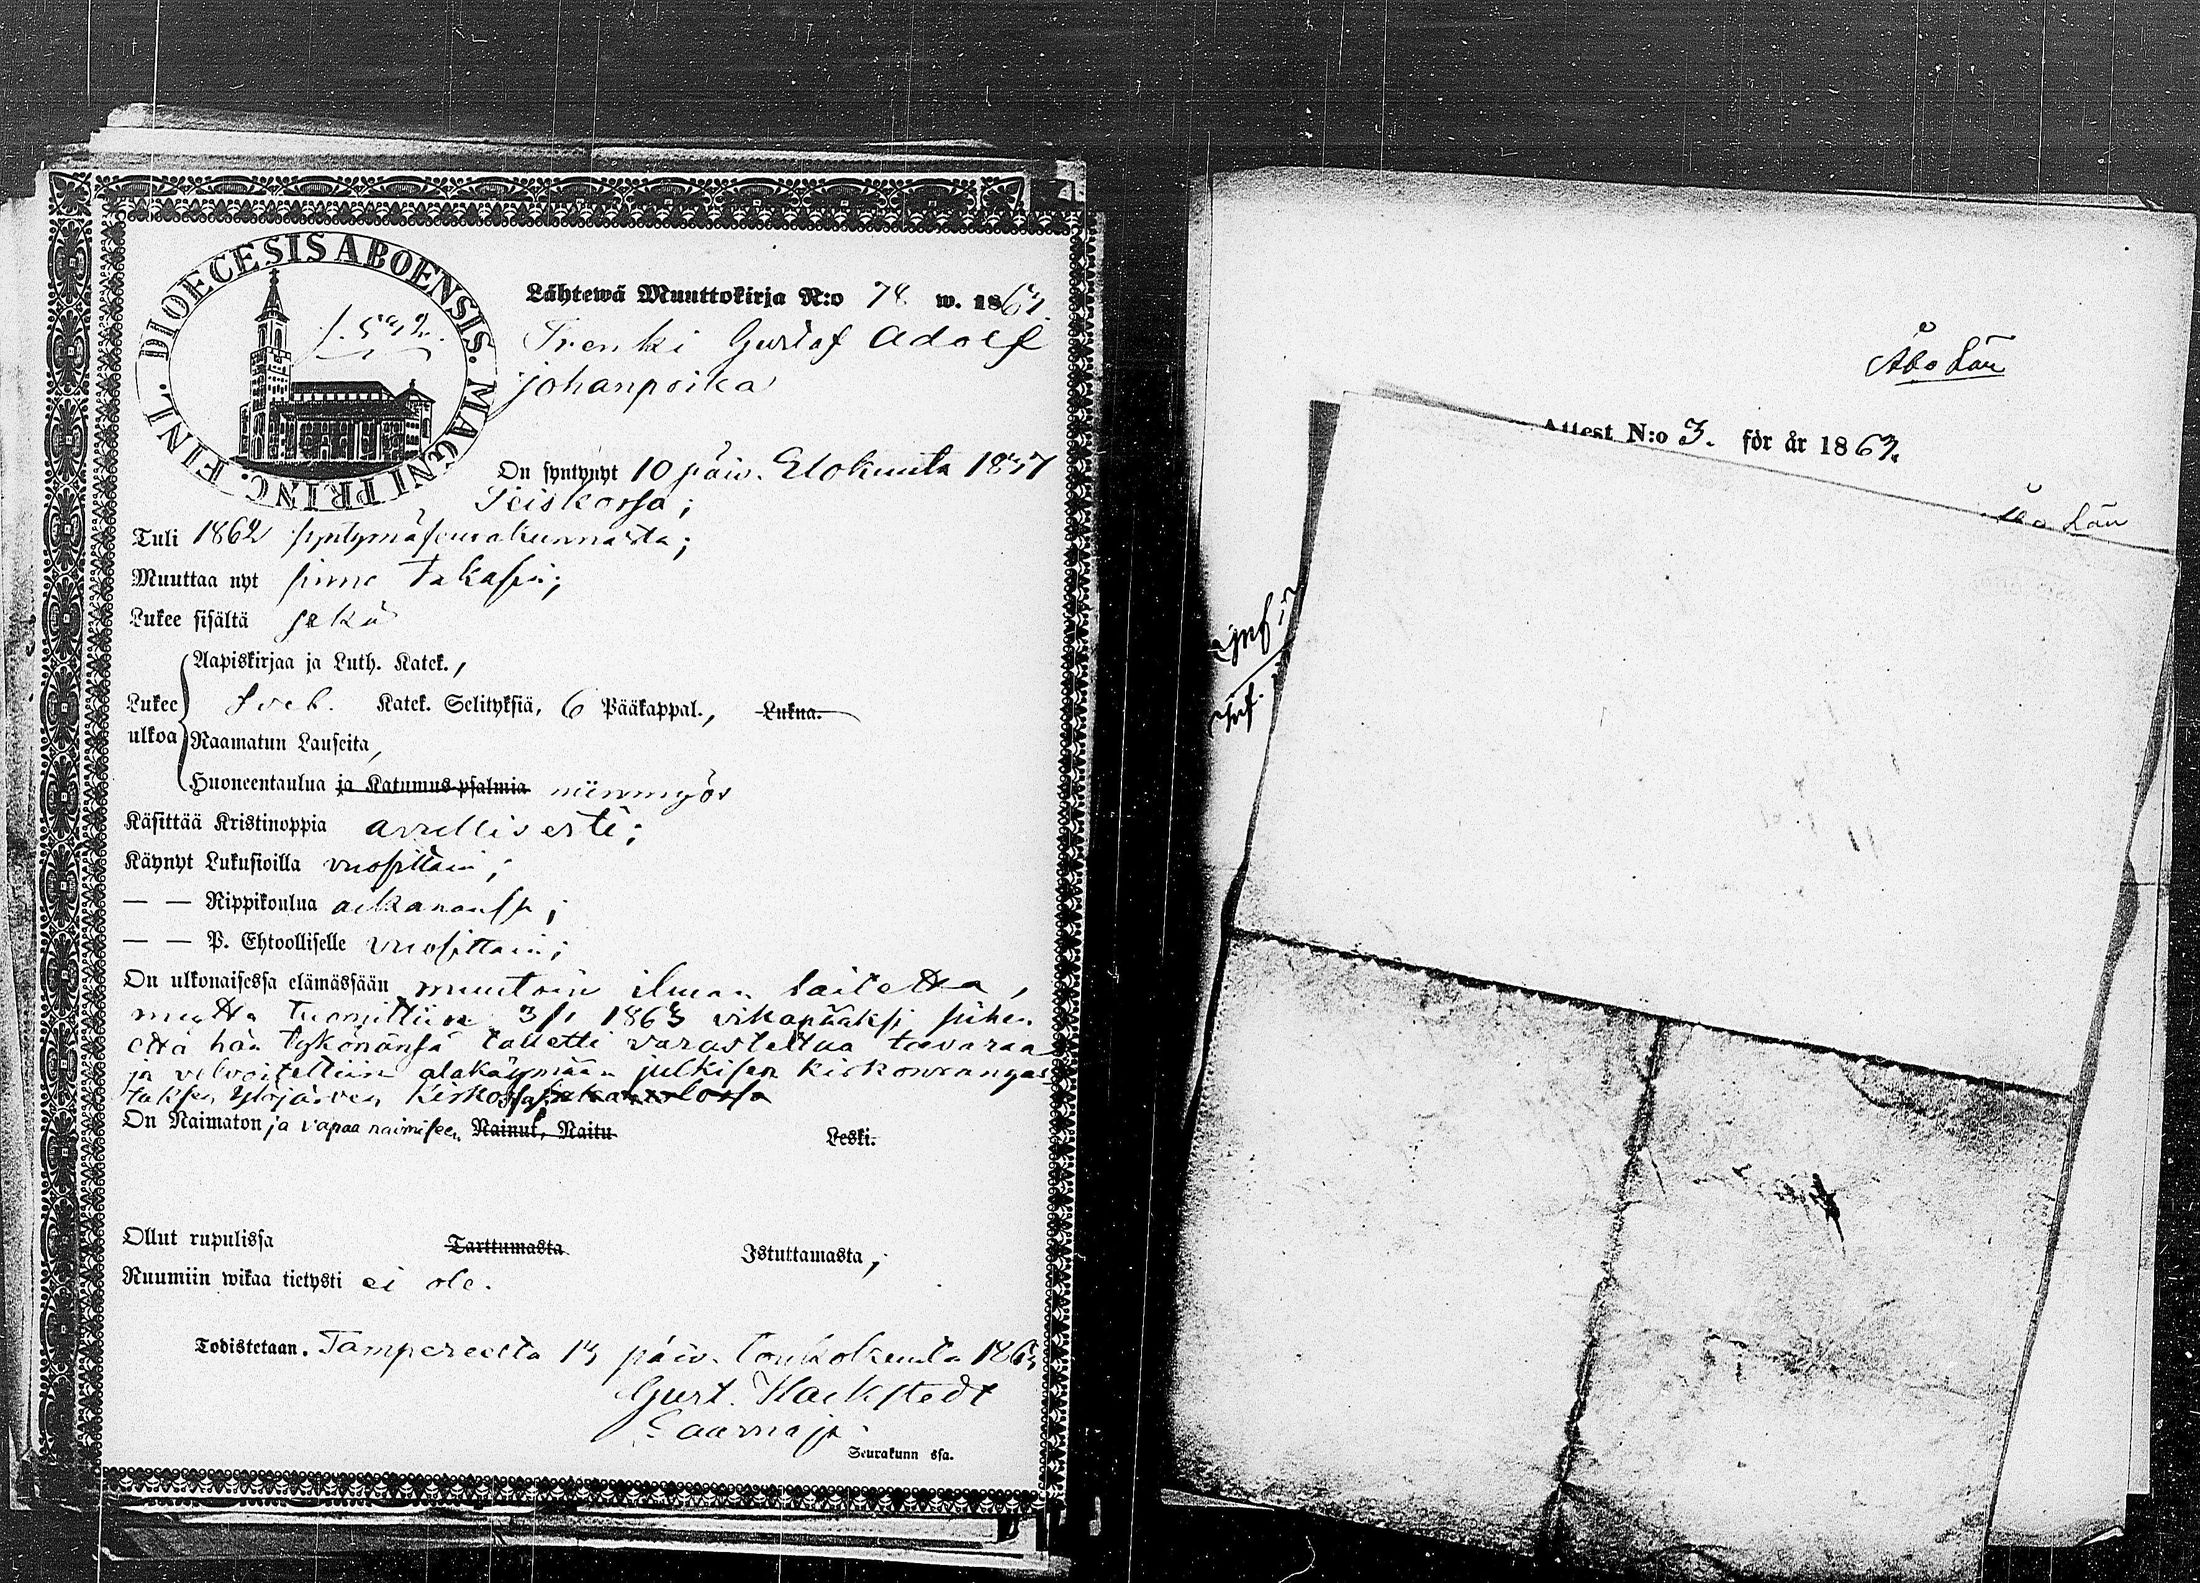 DIOECESIS ABOENSIS. MAGNI PRINC. FINL.
Lähtewä Muuttokirja N:o 78 w. 1863.
Trenki Gustaf Adolf
johanpoika
On syntynyt 10 päiv. Elokuuta 1837
Teiskossa;
Tuli 1862 syntymäseurakunnasta;
Muuttaa nyt sinne takasin;
Lukee sisältä sekä
Aapiskirjaa ja Luth. Katek.,
Lukee ulkoa Sveb. Katek. Selityksiä, 6 Pääkappal., Lukua.
Raamatun Lauseita,
Huoneentaulua ja Katumus-psalmia niinmyös
Käsittää Kristinoppia avullisesti;
Käynyt Lukusioilla vuosittain;
— — Rippikoulua aikanansa;
— — P. Ehtoolliselle vuosittain;
On ulkonaisessa elämässään muutoin ilman laitetta,
mutta tuomittiin 3/1 1863 vikapääksi siihen
että hän tykönänsä talletti varastettua tavaraa
ja velvoitettiin alakäymään julkisen kirkonrangas
tuksen Ylöjärven kirkossa
On Naimaton ja vapaa naimiseen Nainut, Naitu Leski.
Ollut rupulissa Tarttumasta Istuttamasta,
Ruumiin wikaa tietysti ei ole.
Todistetaan. Tampereelta 13 päiv. toukokuuta 1863
Gust. Hackstedt
Saarnaja
Seurakunn ssa.
Åbo Län
Attest N:o 3. för år 1863.
Län